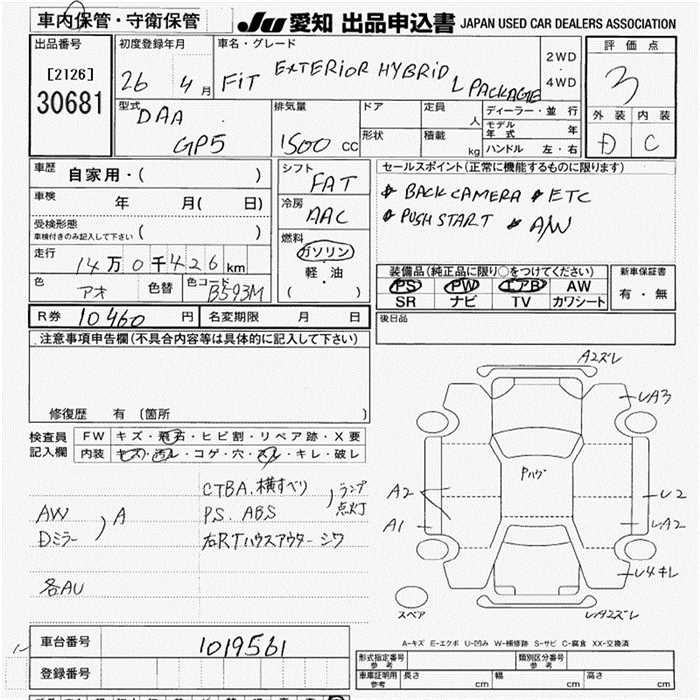 車内保管・守衛保管
JU 愛知 出品申込書 JAPAN USED CAR DEALERS ASSOCIATION
出品番号
[2126]
30681
初度登録年月
26 4月
車名・グレード
FiT EXTERIOR HYBRID L PACKAGE
2WD
4WD
評価点
3
外装 内装
D C
型式
DAA
GP5
排気量
1500 cc
ドア
形状
定員
人
積載
kg
ディーラー・並行
モデル年式 年
ハンドル 左・右
車歴
自家用・( )
車検
年 月( 日)
受検形態
車検付きのみ記入して下さい ( )
走行
14万0千426km
色
アオ
色替
色コード
B593M
シフト
FAT
冷房
AAC
燃料
ガソリン
軽・油
( )
セールスポイント(正常に機能するものに限ります)
BACK CAMERA ETC
PUSH START A/W
装備品(純正品に限り〇をつけてください)
PS PW エアB AW
SR ナビ TV カワシート
新車保証書
有・無
R券 10460 円
名変期限 月 日
後日品
注意事項申告欄(不具合内容等は具体的に記入して下さい)
修復歴 有 (箇所 )
検査員記入欄
FW キズ・飛石・ヒビ割・リペア跡・X要
内装 キズ・汚レ・コゲ・穴・スレ・キレ・破レ
CTBA.横すべり
P.S. ABS
ランプ点灯
右RTハウスアウター シワ
AW
Dミラー
A
各AU
A2ズレ
UA3
Pハゲ
A2
A1
U2
UA2
U4キレ
UA2ズレ
スペア
A-キズ E-エクボ U-凹み W-補修跡 S-サビ C-腐食 XX-交換済
車台番号 1019561
登録番号
形式指定番号 参考
類別区分番号 参考
車庫証明用 参考
長さ cm
幅 cm
高さ cm